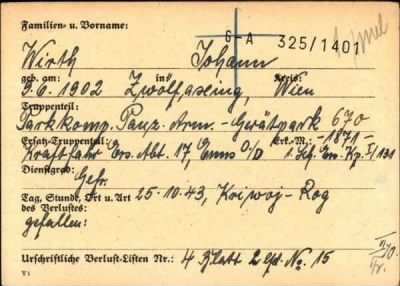 Familien- u. Vorname:
G-A 325/1401
Wirth Johann
geb. am: in Kreis:
9.6.1902 Zwölfaxing, Wien
Truppenteil:
Parkkomp. Panz. Arm.-Gerätpark 670
Ersatz-Truppenteil: Erk.-M.: -1871-
Kraftfahr Ers. Abt. 17, Enns O/D 1. Schtz. Ers. Kp. I/131
Dienstgrad:
Gefr.
Tag, Stunde, Ort u. Art 25.10.43, Kriwoj-Rog
des Verlustes:
gefallen:
Urschriftliche Verlust-Listen Nr.: 4 Blatt 2 lfd. No. 15
V 1